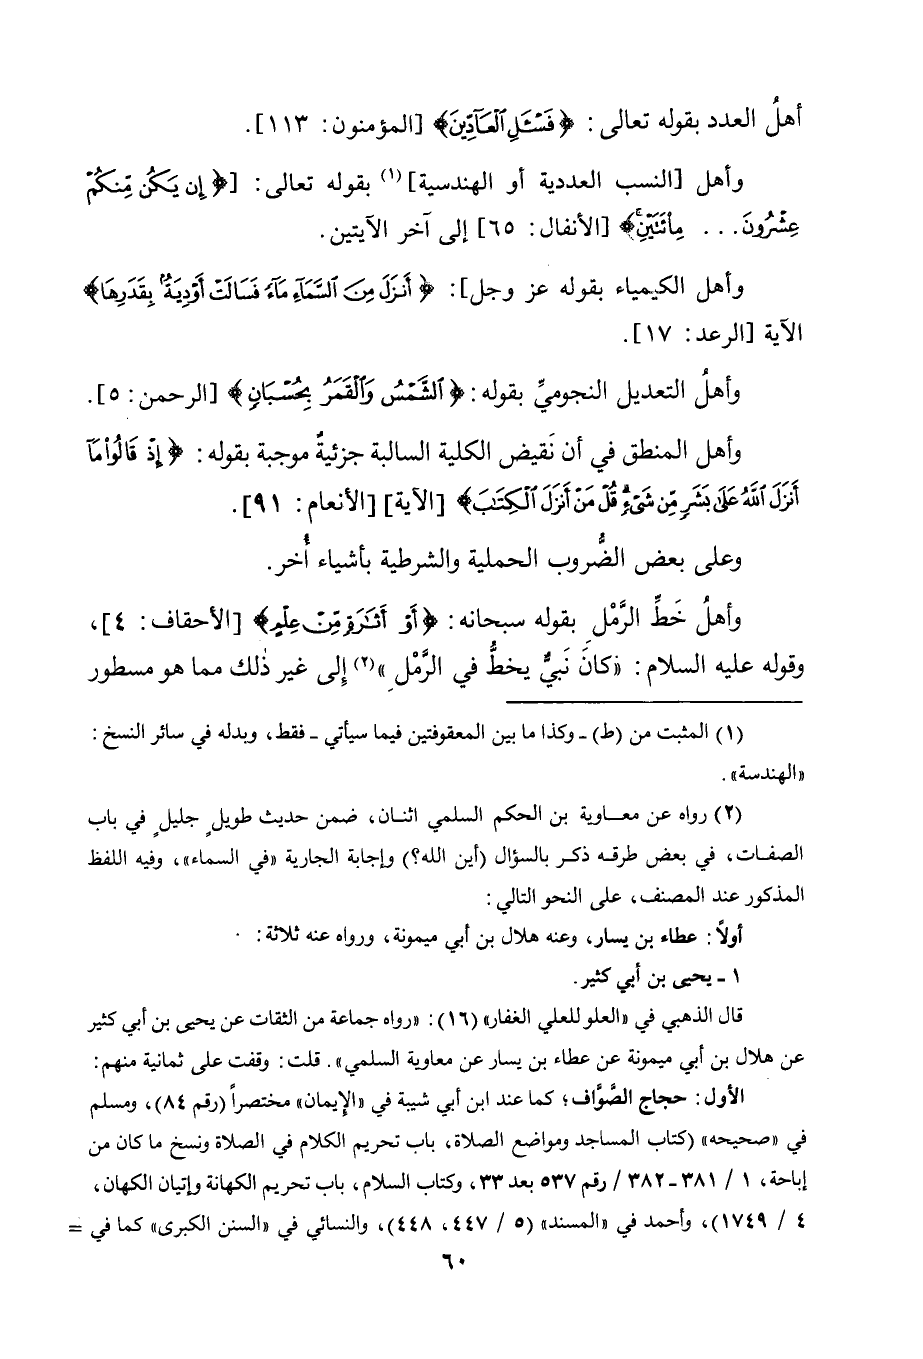 أهلُ العدد بقوله تعالى: ﴿فَسْـَٔلِ ٱلْعَآدِّينَ﴾ [المؤمنون: ١١٣].
وأهل [النسب العددية أو الهندسية](١) بقوله تعالى: [﴿إِن يَكُن مِّنكُمْ
عِشْرُونَ... مِاْئَتَيْنِ﴾ [الأنفال: ٦٥] إلى آخر الآيتين.
وأهل الكيمياء بقوله عز وجل]: ﴿أَنزَلَ مِنَ ٱلسَّمَآءِ مَآءً فَسَالَتْ أَوْدِيَةٌۢ بِقَدَرِهَا﴾
الآية [الرعد: ١٧].
وأهلُ التعديل النجوميِّ بقوله: ﴿ٱلشَّمْسُ وَٱلْقَمَرُ بِحُسْبَانٍ﴾ [الرحمن: ٥].
وأهل المنطق في أن نَقيض الكلية السالبة جزئيةٌ موجبة بقوله: ﴿إِذْ قَالُوا۟ مَآ
أَنزَلَ ٱللَّهُ عَلَىٰ بَشَرٍ مِّن شَىْءٍ ۗ قُلْ مَنْ أَنزَلَ ٱلْكِتَٰبَ﴾ [الآية] [الأنعام: ٩١].
وعلى بعض الضُّروب الحملية والشرطية بأشياء أُخر.
وأهلُ خَطِّ الرَّمْلِ بقوله سبحانه: ﴿أَوْ أَثَٰرَةٍ مِّنْ عِلْمٍ﴾ [الأحقاف: ٤]،
وقوله عليه السلام: «كانَ نَبيٌّ يخطُّ في الرَّمْلِ»(٢) إلى غير ذلك مما هو مسطور
(١) المثبت من (ط) ـ وكذا ما بين المعقوفتين فيما سيأتي ـ فقط، وبدله في سائر النسخ:
«الهندسة».
(٢) رواه عن معاوية بن الحكم السلمي اثنان، ضمن حديث طويلٍ جليلٍ في باب
الصفات، في بعض طرقه ذكر بالسؤال (أين الله؟) وإجابة الجارية «في السماء»، وفيه اللفظ
المذكور عند المصنف، على النحو التالي:
أولاً: عطاء بن يسار، وعنه هلال بن أبي ميمونة، ورواه عنه ثلاثة:
١ ـ يحيى بن أبي كثير.
قال الذهبي في «العلو للعلي الغفار» (١٦): «رواه جماعة من الثقات عن يحيى بن أبي كثير
عن هلال بن أبي ميمونة عن عطاء بن يسار عن معاوية السلمي». قلت: وقفت على ثمانية منهم:
الأول: حجاج الصَّوَّاف؛ كما عند ابن أبي شيبة في «الإيمان» مختصراً (رقم ٨٤)، ومسلم
في «صحيحه» (كتاب المساجد ومواضع الصلاة، باب تحريم الكلام في الصلاة ونسخ ما كان من
إباحة، ١ / ٣٨١ـ٣٨٢ / رقم ٥٣٧ بعد ٣٣، وكتاب السلام، باب تحريم الكهانة وإتيان الكهان،
٤ / ١٧٤٩)، وأحمد في «المسند» (٥ / ٤٤٧، ٤٤٨)، والنسائي في «السنن الكبرى» كما في =
٦٠